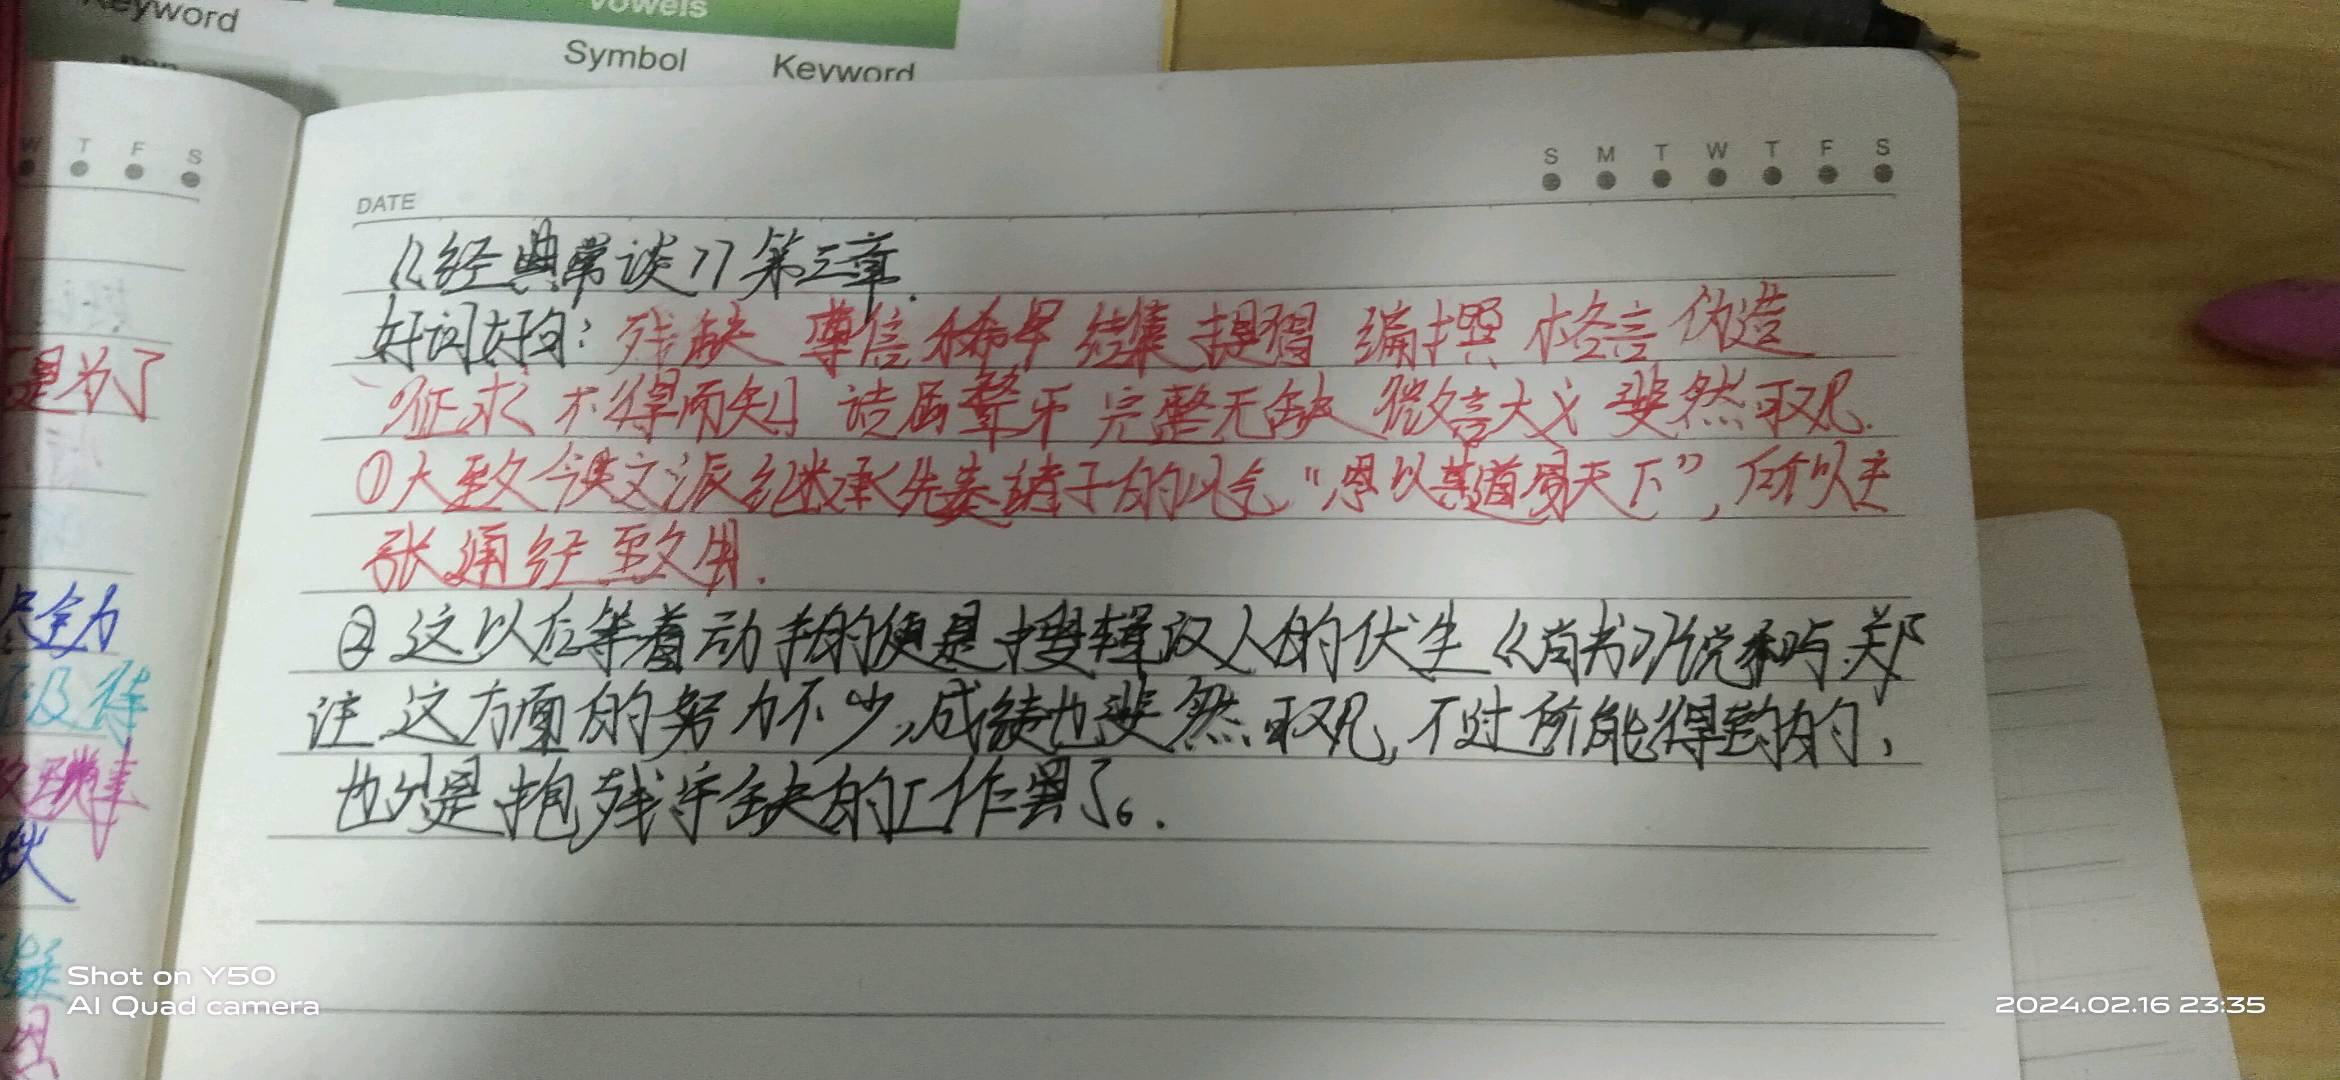 Keyword
vowels
Symbol
Keyword
W T F S
S M T W T F S
DATE
《经典常谈》第三章.
好词好句：残缺 尊信 稀罕 结集 提留 编撰 格言 伪造
征求 不得而知 诘屈聱牙 完整无缺 微言大义 斐然可观.
①大致今文派继承先秦诸子的风气“思以其道易天下”，所以主
张通经致用.
②这以后等着动手的便是搜辑汉人的伏生《尚书》说和与郑
注 这方面的努力不少，成绩也斐然可观，不过所能得到的，
也只是抱残守缺的工作罢了。.
是为了
尽全力
及待
Shot on Y50
AI Quad camera
2024.02.16 23:35